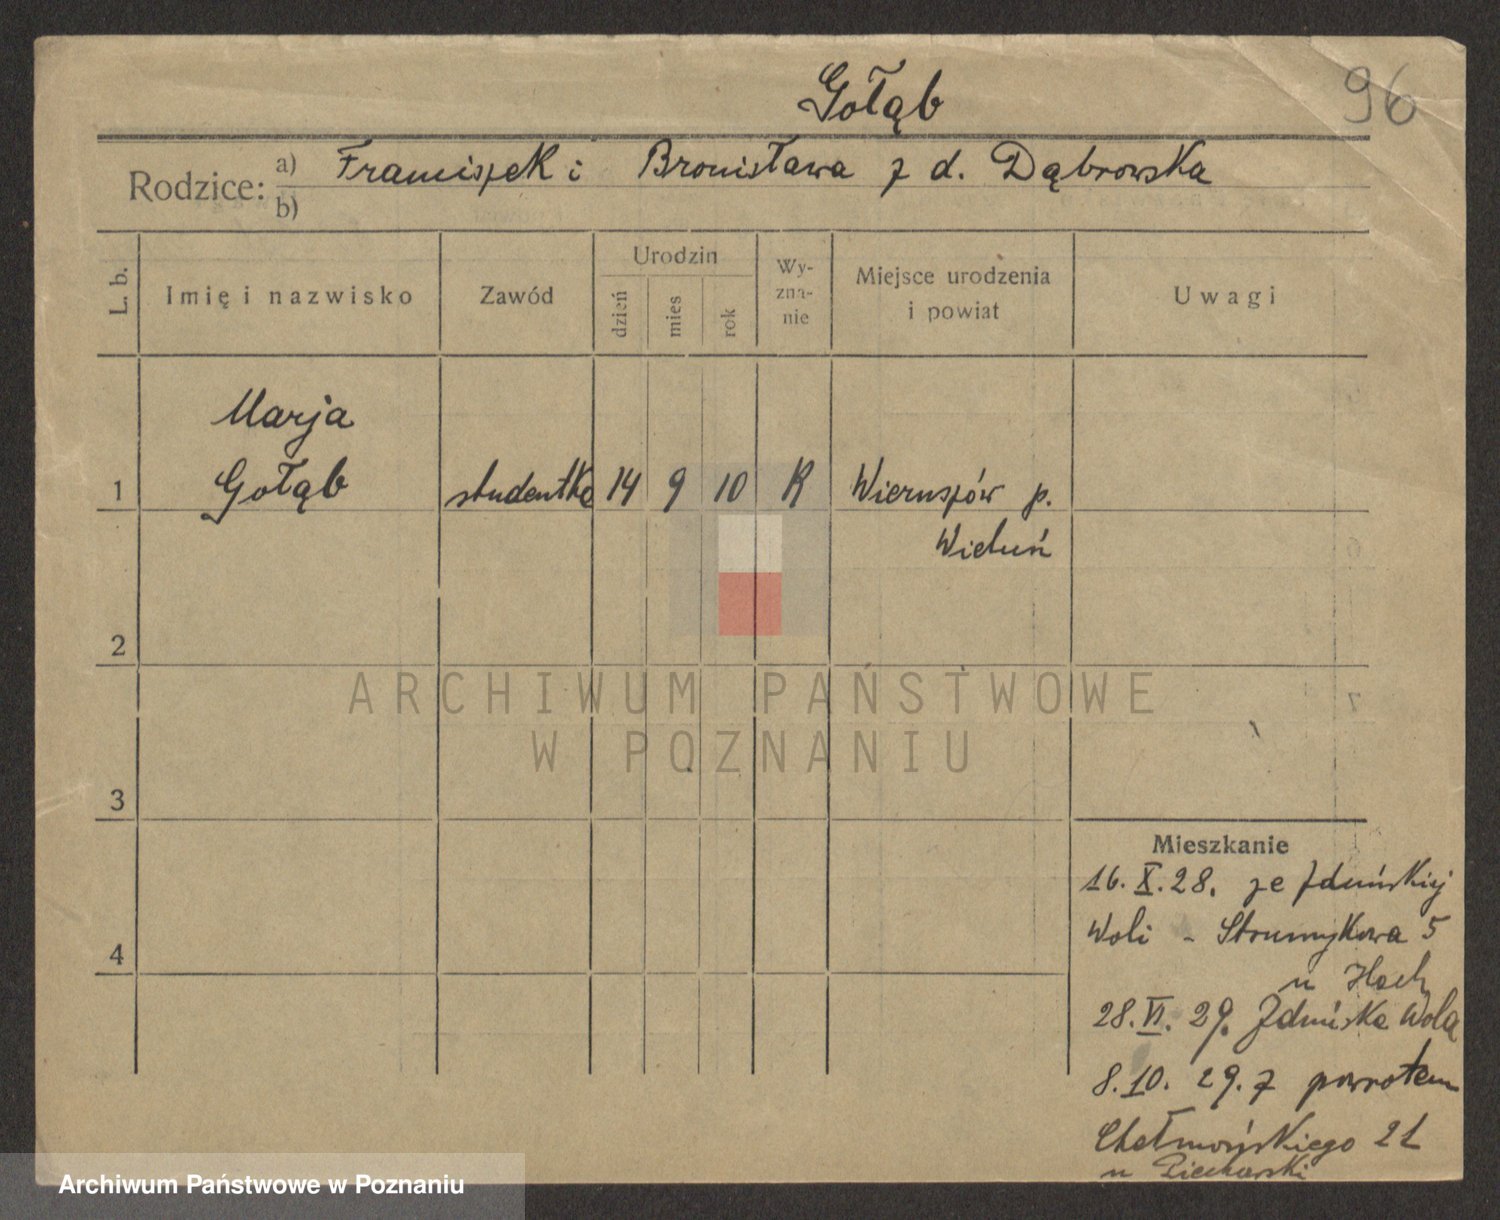 Gołąb
96
Rodzice: a) Franciszek i Bronisława z d. Dąbrowska
b)
L. b.
Imię i nazwisko
Zawód
Urodzin
dzień
mies
rok
Wy-
zna-
nie
Miejsce urodzenia
i powiat
Uwagi
Marja
1 Gołąb studentka 14 9 10 R Wieruszów p.
Wieluń
2
3
4
ARCHIWUM PAŃSTWOWE
W POZNANIU
Mieszkanie
16. X. 28. ze Zduńskiej
Woli - Strumykowa 5
u Hoch
28. VI. 29. Zduńska Wola
8. 10. 29. z powrotem
Chełmońskiego 21
u Piecharski
Archiwum Państwowe w Poznaniu